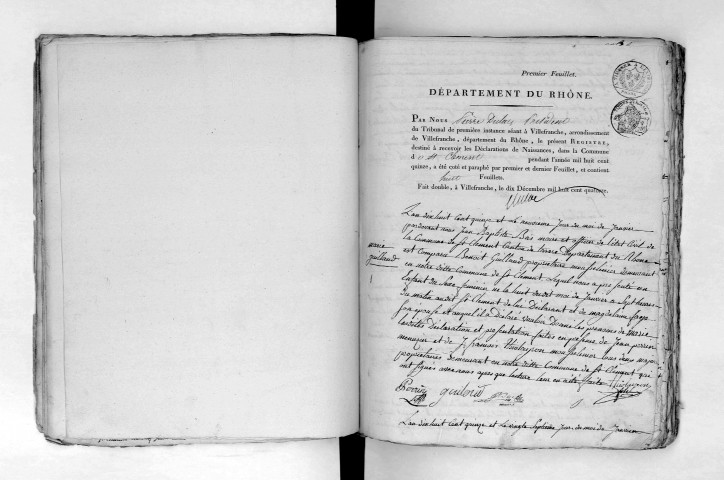 Premier Feuillet.
DÉPARTEMENT DU RHÔNE.
PAR NOUS Pierre Président
du Tribunal de première instance séant à Villefranche, arrondissement
de Villefranche, département du Rhône, le présent REGISTRE,
destiné à recevoir les Déclarations de Naissances, dans la Commune
d St Clément pendant l'année mil huit cent
quinze, a été coté et paraphé par premier et dernier Feuillet, et contient
huit Feuillets.
Fait double, à Villefranche, le dix Décembre mil huit cent quatorze.
L'an dix huit cent quinze et le neuvieme Jour du mois de Janvier
pardevant nous Jean Baptiste Bas maire et officier de l'état Civil de
la Commune de St Clement Canton de Département du Rhône
marie
guilland
est Comparu Benoit Guilland propriétaire demeurant
en notre ditte Commune de St Clement Lequel nous a présenté un
Enfant du Sexe feminin né le huit dudit mois de Janvier a Sept heures
du matin audit St Clement de lui Déclarant et de magdelaine
Son épouse et auquel il a Déclaré vouloir Donner les prénoms de marie
Lesdittes Déclaration et présentation faites en présence de Jean
et de françois tous deux majeurs
propriétaires demeurant en notre ditte Commune de St Clement qui
ont signés avec nous après que lecture leur en a été faite
guilland
L'an dix huit cent quinze et le vingt Septieme Jour du mois de Janvier